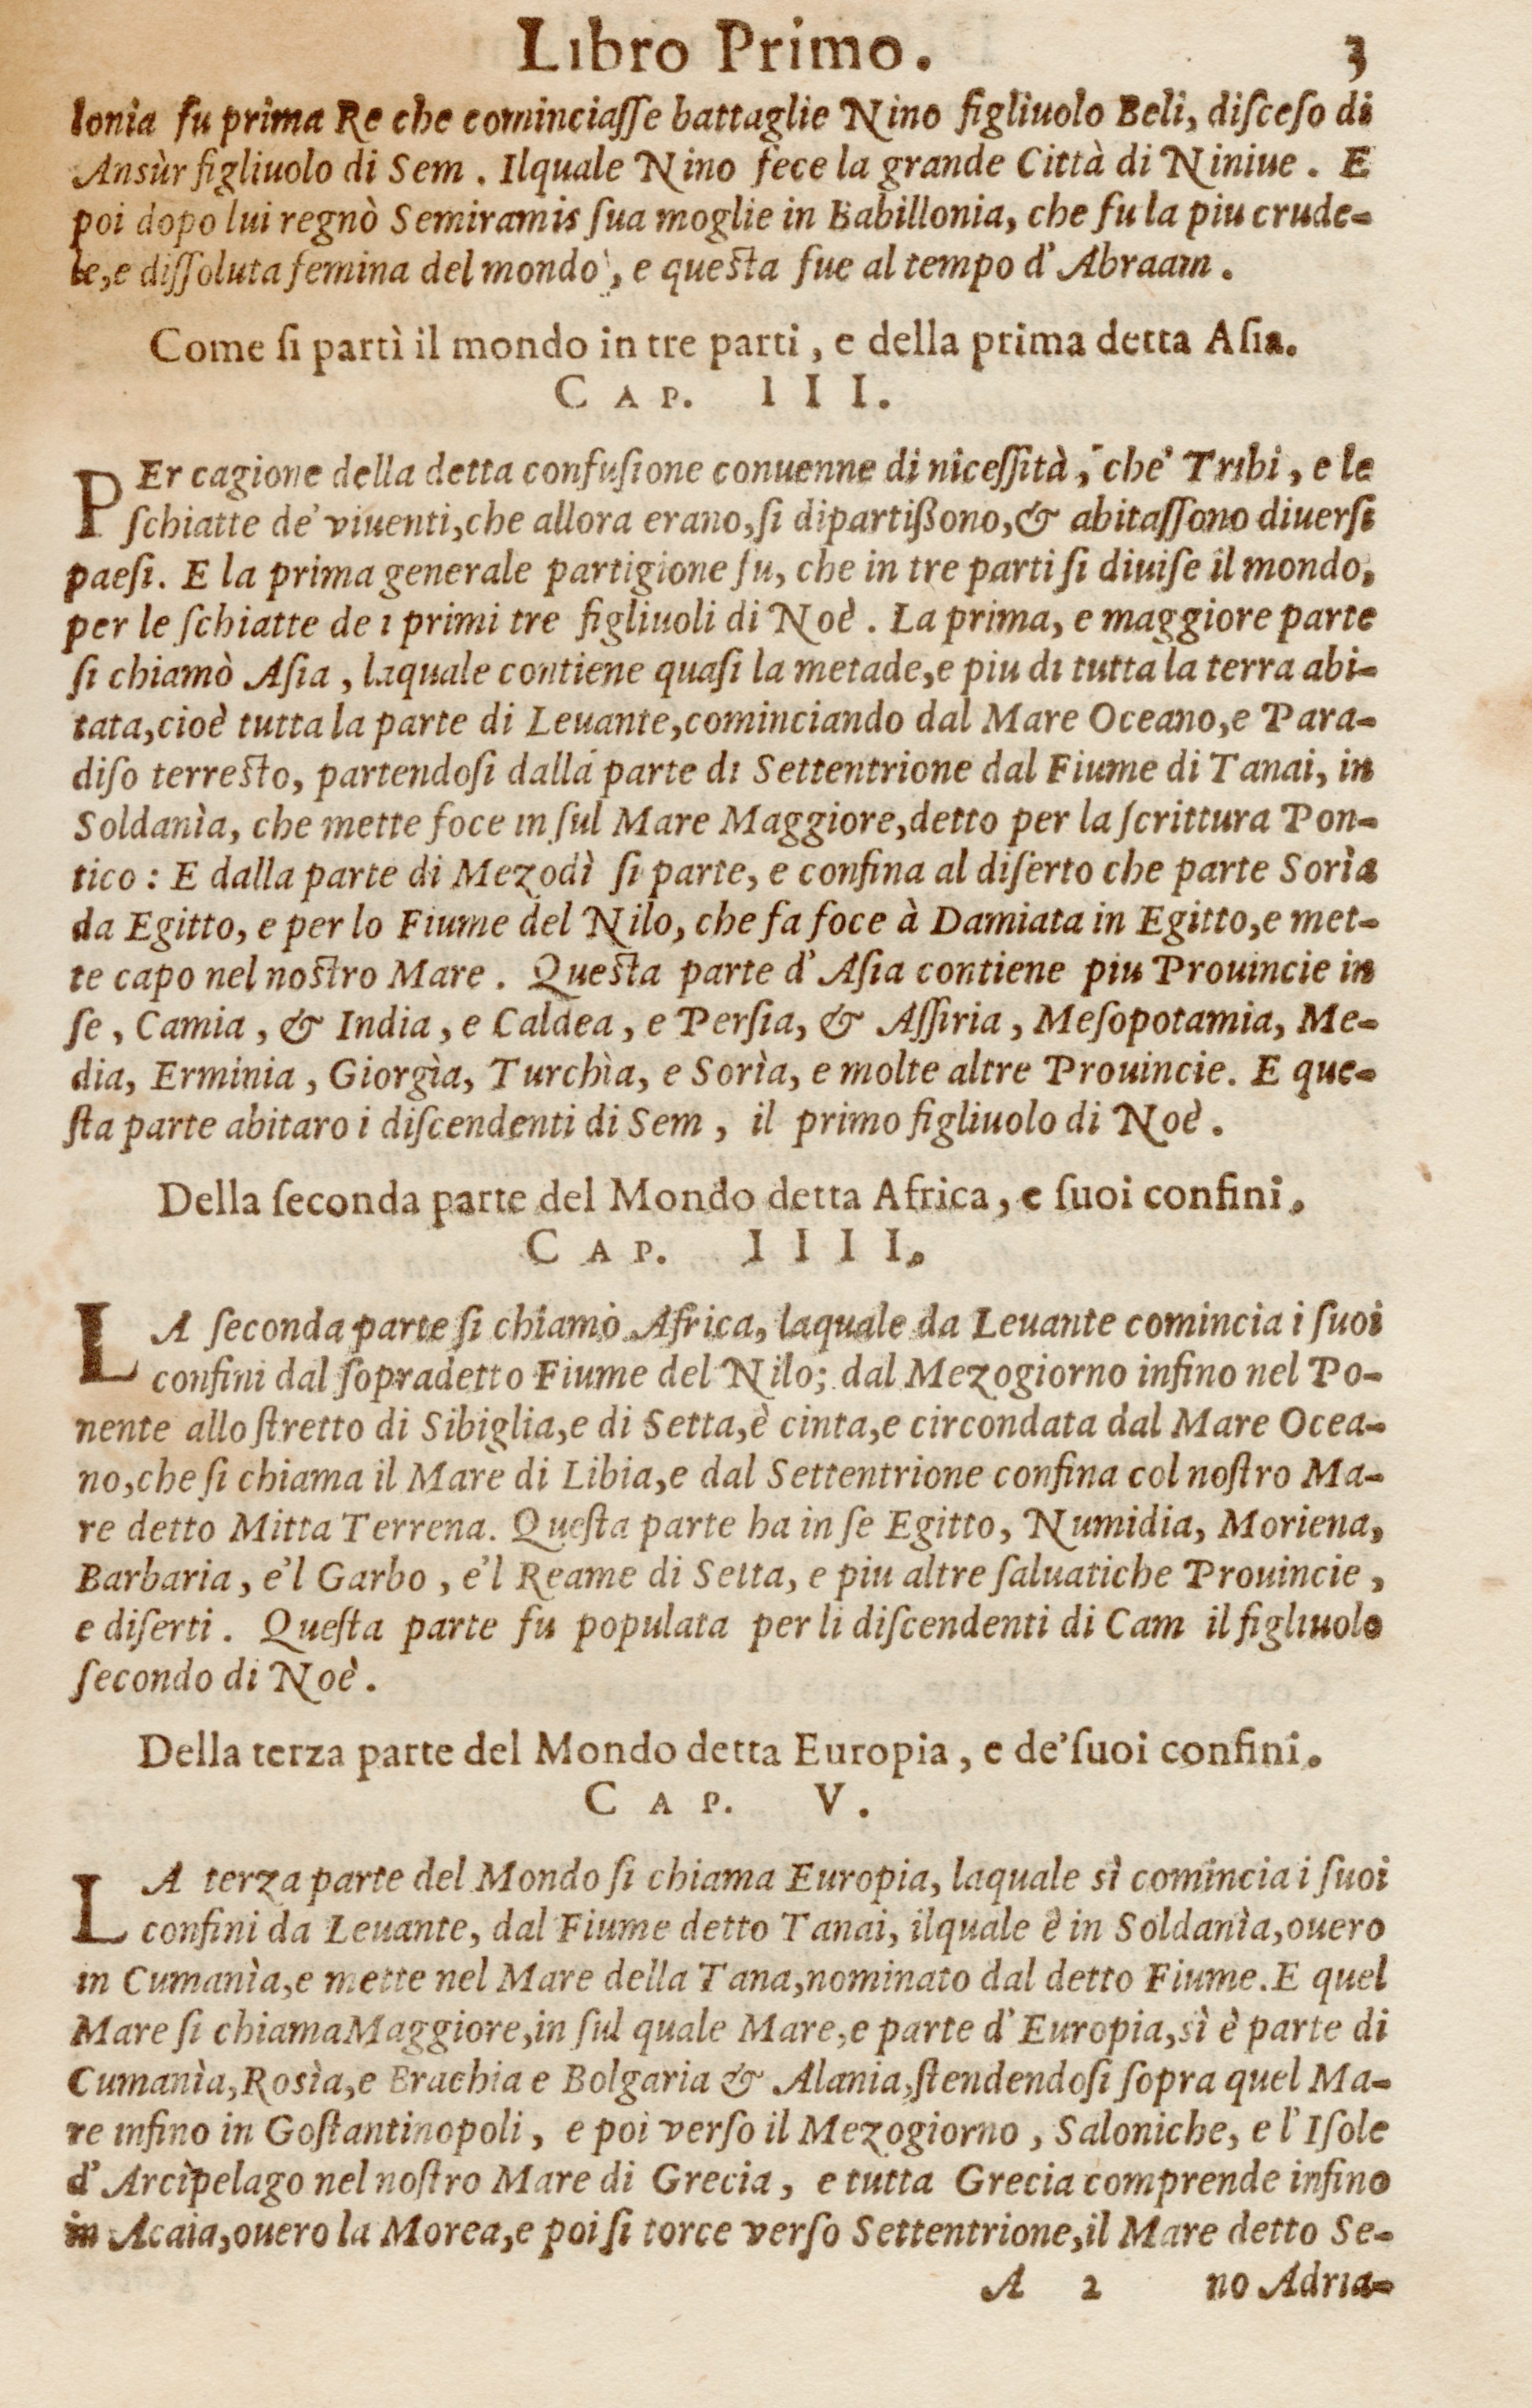 Libro Primo. 3
lonia fu prima Re che cominciaſſe battaglie Nino figliuolo Beli, diſceſo di
Ansùr figliuolo di Sem. Ilquale Nino fece la grande Città di Niniue. E
poi dopo lui regnò Semiramis ſua moglie in Babillonia, che fu la piu crude-
le,e diſſoluta femina del mondo, e queſta fue al tempo d'Abraam.
Come ſi partì il mondo in tre parti, e della prima detta Aſia.
CAP. III.
PEr cagione della detta confuſione conuenne di niceſſità, che' Tribi, e le
ſchiatte de' viuenti,che allora erano,ſi dipartißono,& abitaſſono diuerſi
paeſi. E la prima generale partigione fu, che in tre parti ſi diuiſe il mondo,
per le ſchiatte de i primi tre figliuoli di Noè. La prima, e maggiore parte
ſi chiamò Aſia, laquale contiene quaſi la metade,e piu di tutta la terra abi-
tata,cioè tutta la parte di Leuante,cominciando dal Mare Oceano,e Para-
diſo terreſto, partendoſi dalla parte di Settentrione dal Fiume di Tanai, in
Soldanìa, che mette foce in ſul Mare Maggiore,detto per la ſcrittura Pon-
tico: E dalla parte di Mezodì ſi parte, e confina al diſerto che parte Sorìa
da Egitto, e per lo Fiume del Nilo, che fa foce à Damiata in Egitto,e met-
te capo nel noſtro Mare. Queſta parte d'Aſia contiene piu Prouincie in
ſe, Camia, & India, e Caldea, e Perſia, & Aſſiria, Meſopotamia, Me-
dia, Erminia, Giorgìa, Turchìa, e Sorìa, e molte altre Prouincie. E que-
ſta parte abitaro i diſcendenti di Sem, il primo figliuolo di Noè.
Della ſeconda parte del Mondo detta Africa, e ſuoi confini.
CAP. IIII.
LA ſeconda parte ſi chiamò Africa, laquale da Leuante comincia i ſuoi
confini dal ſopradetto Fiume del Nilo; dal Mezogiorno infino nel Po-
nente allo ſtretto di Sibiglia,e di Setta,è cinta,e circondata dal Mare Ocea-
no,che ſi chiama il Mare di Libia,e dal Settentrione confina col noſtro Ma-
re detto Mitta Terrena. Queſta parte ha in ſe Egitto, Numidia, Moriena,
Barbaria, e'l Garbo, e'l Reame di Setta, e piu altre ſaluatiche Prouincie,
e diſerti. Queſta parte fu populata per li diſcendenti di Cam il figliuolo
ſecondo di Noè.
Della terza parte del Mondo detta Europia, e de' ſuoi confini.
CAP. V.
LA terza parte del Mondo ſi chiama Europia, laquale sì comincia i ſuoi
confini da Leuante, dal Fiume detto Tanai, ilquale è in Soldanìa,ouero
in Cumanìa,e mette nel Mare della Tana,nominato dal detto Fiume.E quel
Mare ſi chiamaMaggiore,in ſul quale Mare,e parte d'Europia,sì è parte di
Cumanìa,Rosìa,e Brachia e Bolgaria & Alania,ſtendendoſi ſopra quel Ma-
re infino in Goſtantinopoli, e poi verſo il Mezogiorno, Saloniche, e l'Iſole
d'Arcipelago nel noſtro Mare di Grecia, e tutta Grecia comprende infino
in Acaia,ouero la Morea,e poi ſi torce verſo Settentrione,il Mare detto Se-
A 2 no Adria-